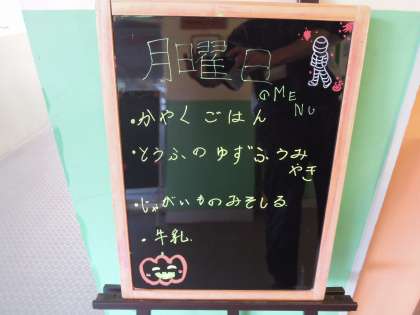 月曜日
のMENU
・かやくごはん
・とうふのゆずふうみ
やき
・じゃがいものみそしる
・牛乳